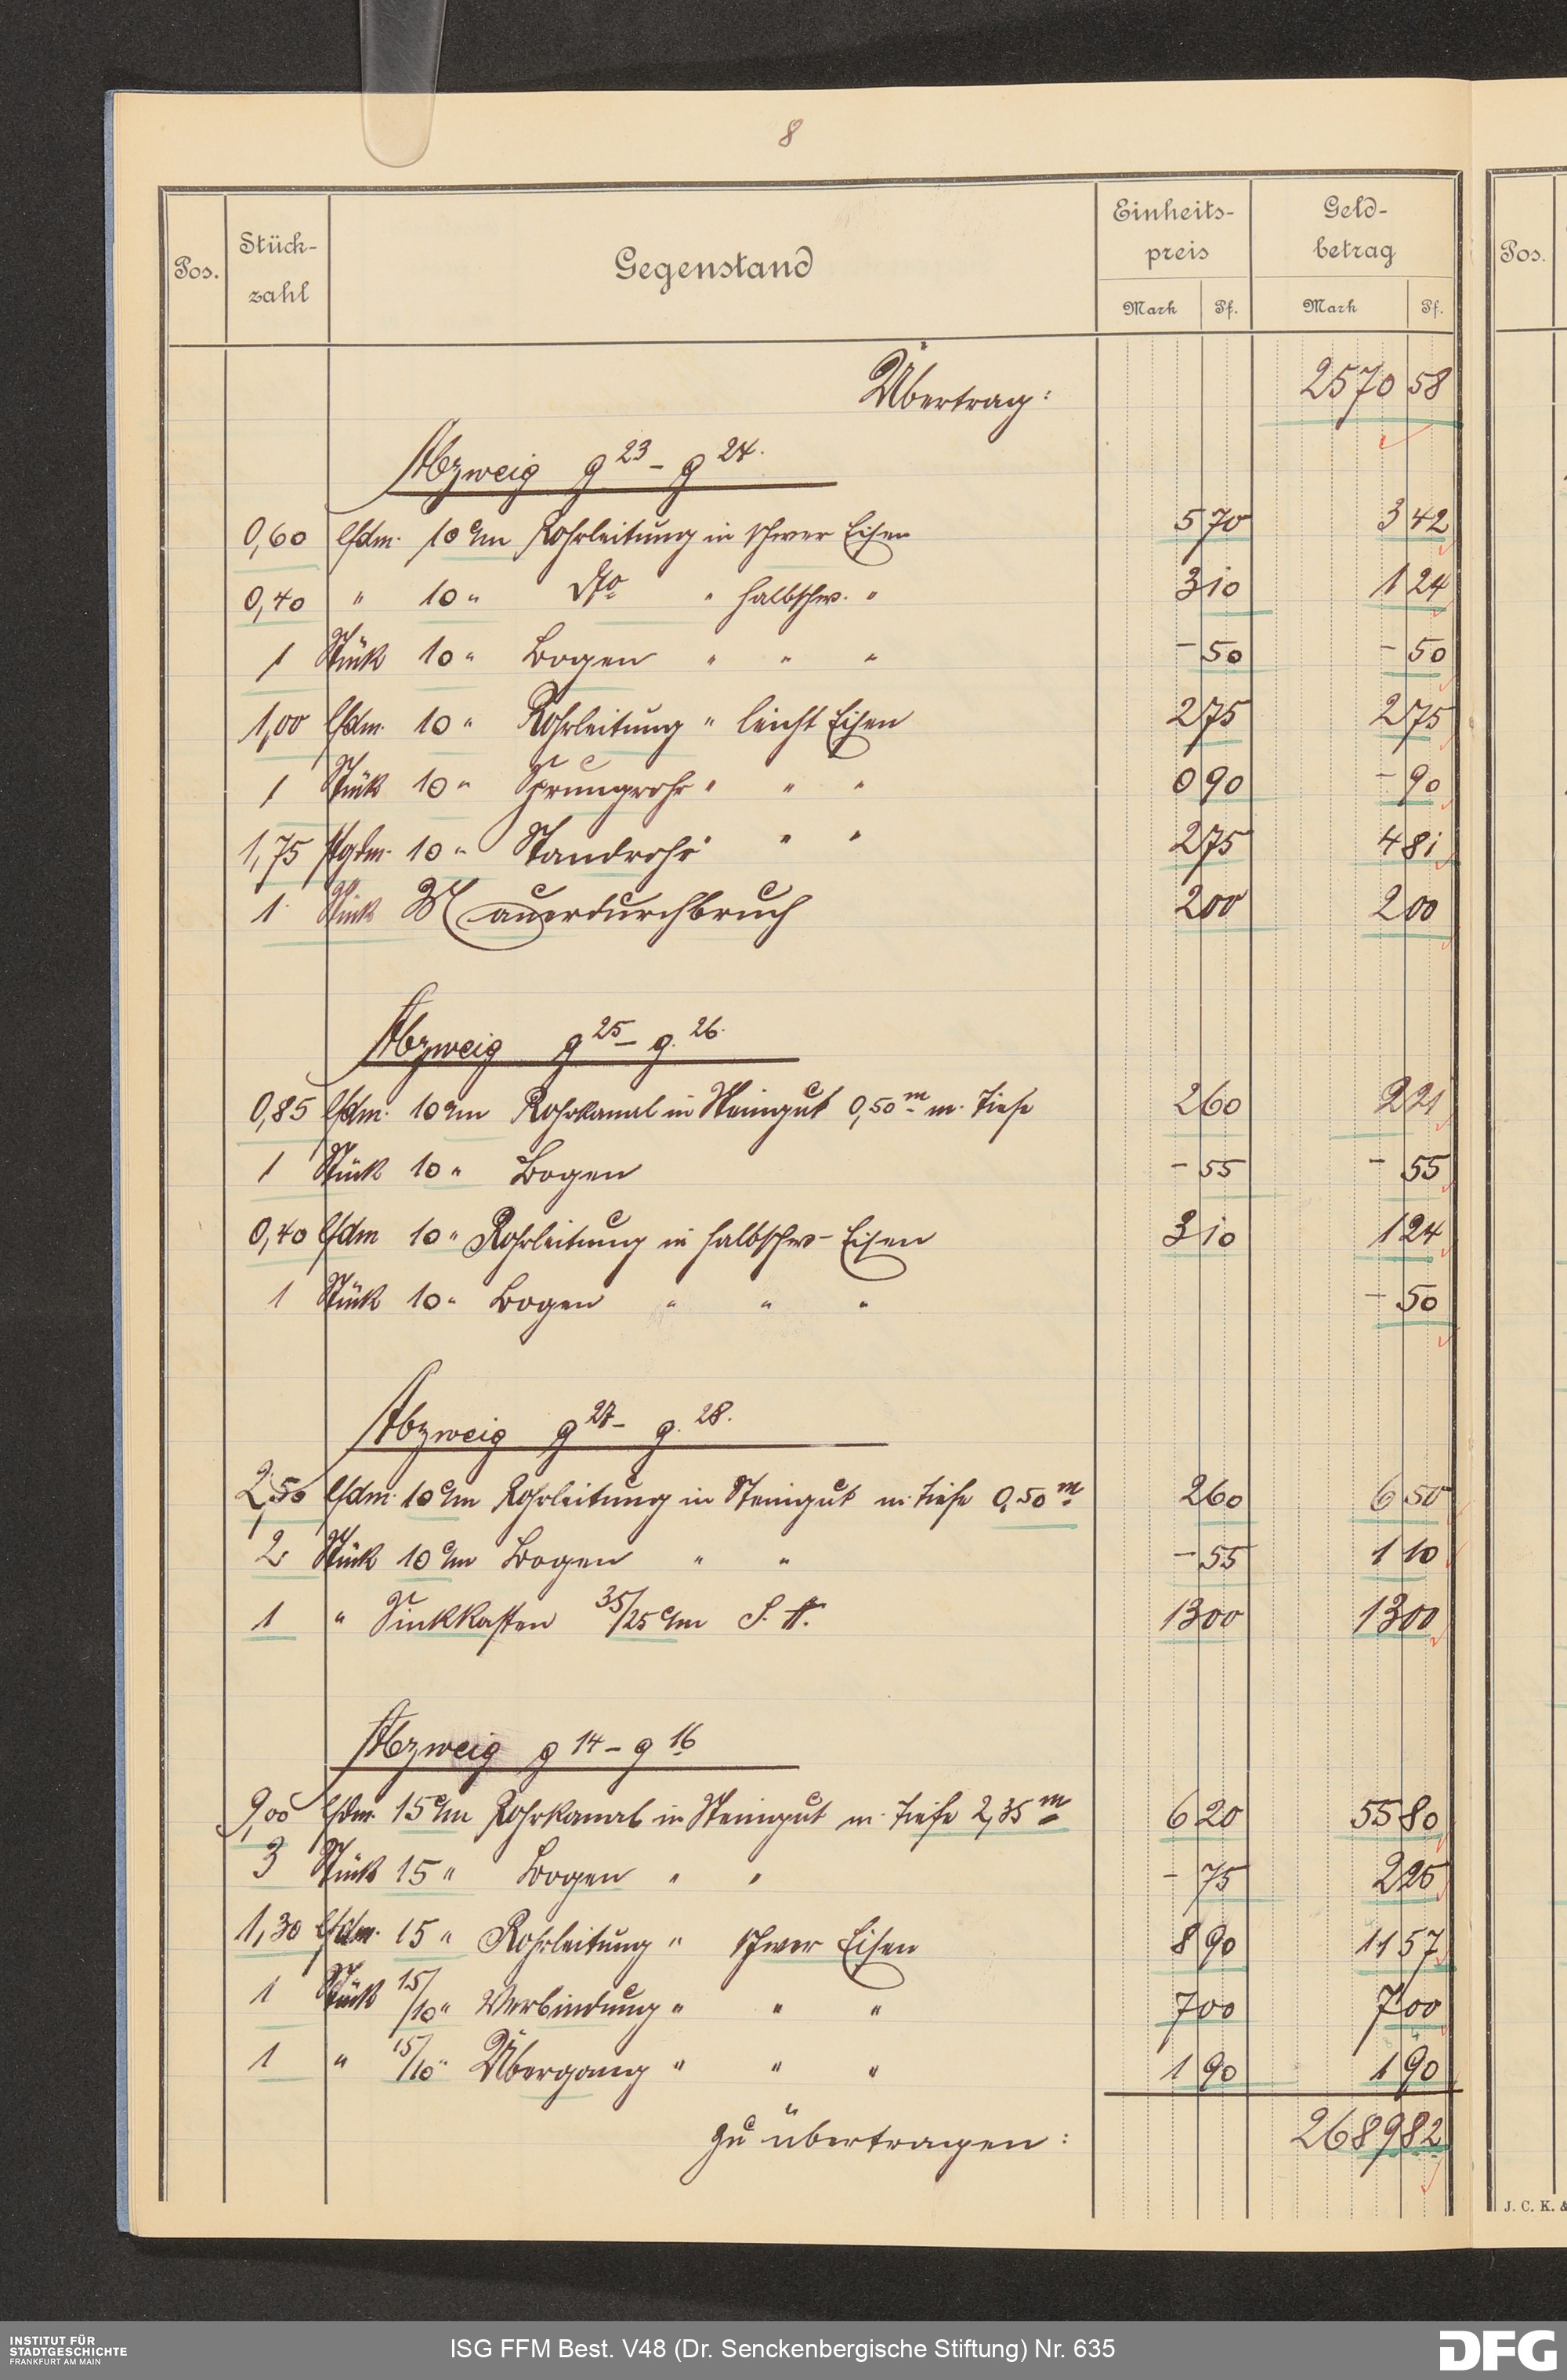 8
Pos. Stück-zahl Gegenstand Einheits-preis Mark Pf. Geld-betrag Mark Pf. Pos.
Übertrag: 2570 58
Abzweig g 23 – g 24.
0,60 lfdm. 10 c/m Rohrleitung in schwer Eisen 5 70 3 42
0,40 " 10 " dto " halbschw. " 3 10 1 24
1 Stück 10 " Bogen " " " – 50 – 50
1,00 lfdm. 10 " Rohrleitung " leicht Eisen 2 75 2 75
1 Stück 10 " Sprungrohr " " " 0 90 – 90
1,75 stgdm. 10 " Standrohr " " 2 75 4 81
1 Stück Mauerdurchbruch 2 00 2 00
Abzweig g 25 – g. 26.
0,85 lfdm. 10 c/m Rohrkanal in Steingut 0,50 m m. Tiefe 2 60 2 21
1 Stück 10 " Bogen – 55 – 55
0,40 lfdm 10 " Rohrleitung in halbschw- Eisen 3 10 1 24
1 Stück 10 " Bogen " " " – 50
Abzweig g 27 – g. 28.
2,50 lfdm. 10 c/m Rohrleitung in Steingut m. Tiefe 0,50 m 2 60 6 50
2 Stück 10 c/m Bogen " " – 55 1 10
1 " Sinkkasten 35/25 c/m S. A. 13 00 13 00
Abzweig g 14 – g 16
9,00 lfdm. 15 c/m Rohrkanal in Steingut m. Tiefe 2,35 m 6 20 55 80
3 Stück 15 " Bogen " " – 75 2 25
1,30 lfdm. 15 " Rohrleitung " schwer Eisen 8 90 11 57
1 Stück 15/10 " Verbindung " " " 7 00 7 00
1 " 15/10 " Übergang " " " 1 90 1 90
zu übertragen: 2689 82
J. C. K. &
INSTITUT FÜR
STADTGESCHICHTE
FRANKFURT AM MAIN
ISG FFM Best. V48 (Dr. Senckenbergische Stiftung) Nr. 635
DFG